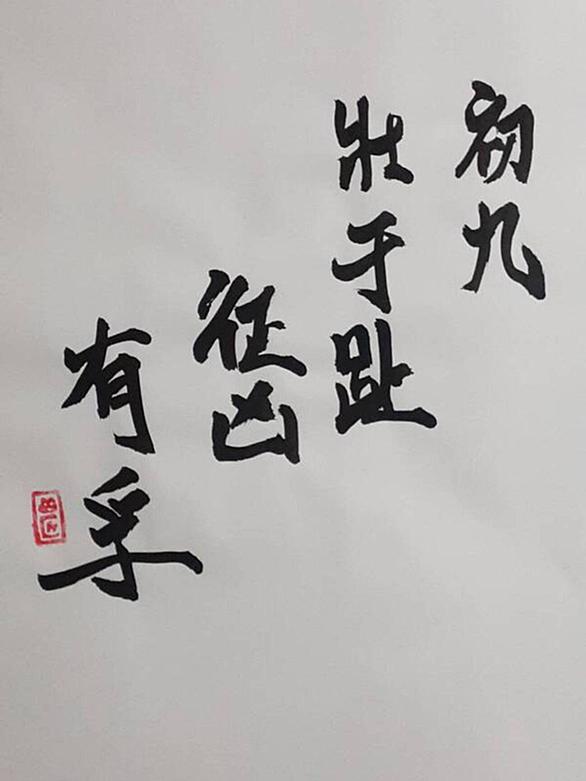 初九
壯于趾
征凶
有孚